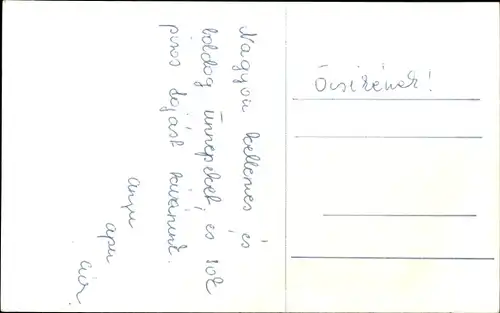 Nagyon kellemes és
boldog ünnepeket, és sok
piros tojást kivánunk.
anyu
apu
Öcsikének!